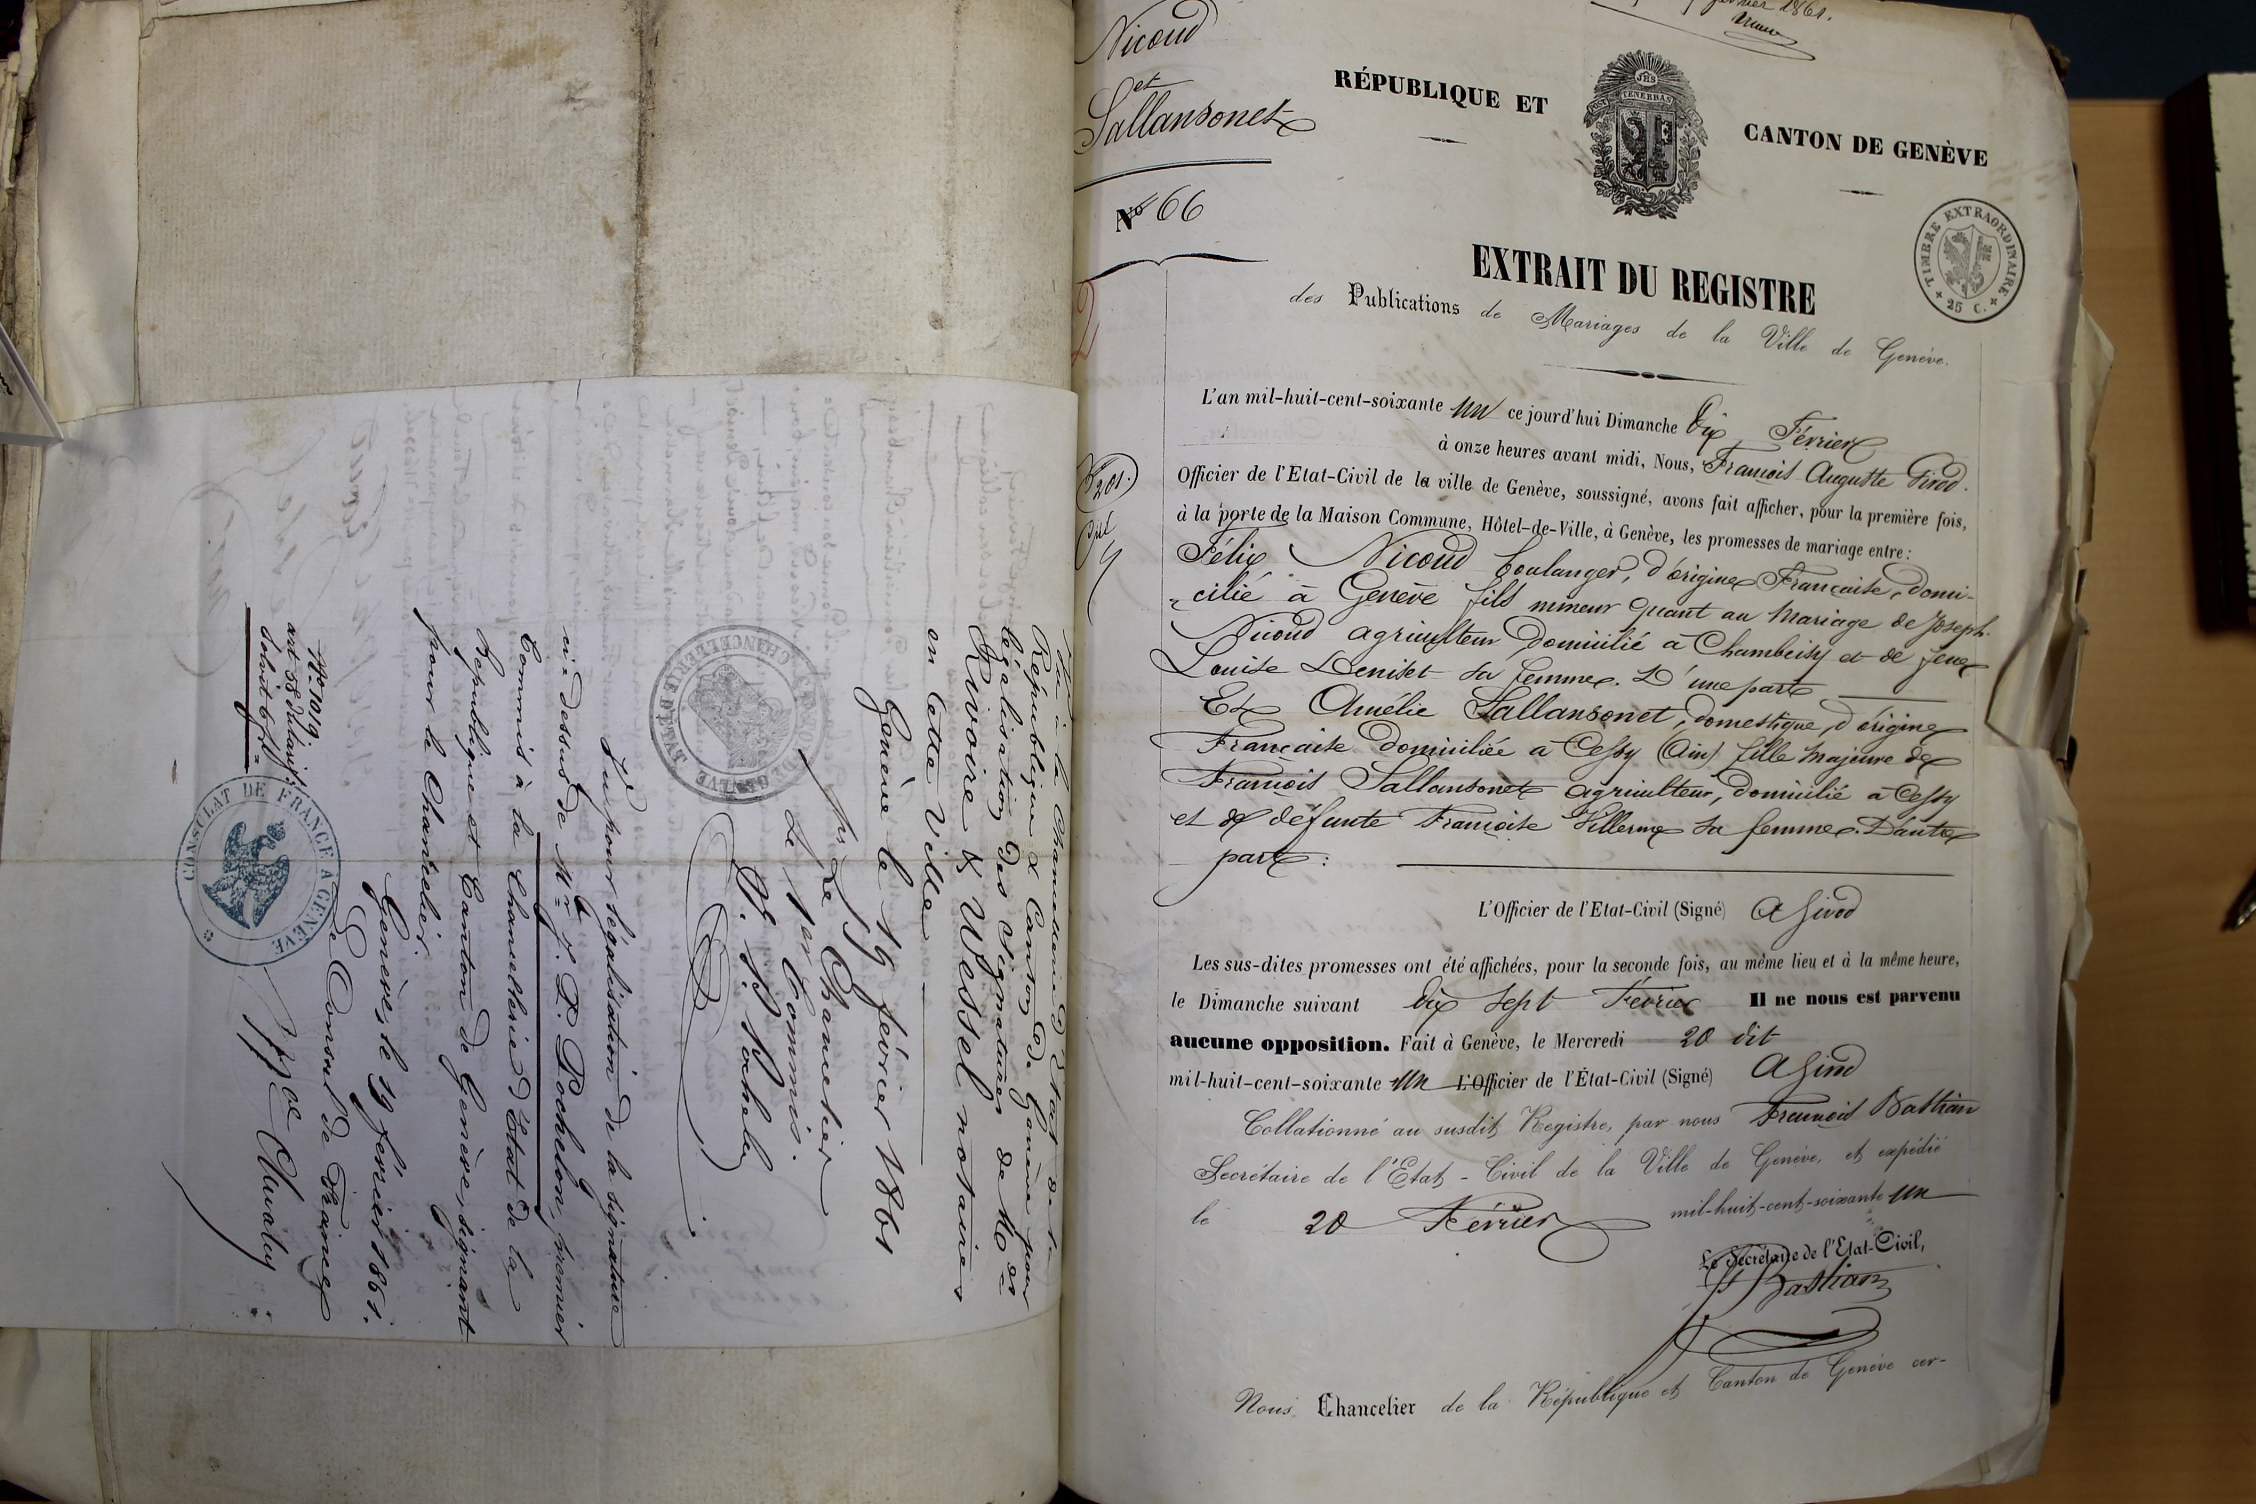 Vu à la Chancellerie d'Etat de la
République & Canton de Genève pour
légalisation des signatures de Mrs
Rivoire & Wessel notaires
en cette ville
Genève le 19 février 1861
Le Chancelier
Le 1er Commis.
CHANCELLERIE
Vu pour légalisation de la signature
ci-dessus de Mr J. P. Rochelon, premier
Commis à la Chancellerie d'Etat de la
République et Canton de Genève, signant
pour le Chancelier.
Genève, le 19 février 1861.
Le Consul de France
CONSULAT DE FRANCE A GENÈVE
No 1019
art 58 du tarif:
Février 1861.
Nicoud
et
Sallansonet
No 66
RÉPUBLIQUE ET
CANTON DE GENÈVE
JHS
POST TENEBRAS
TIMBRE EXTRAORDINAIRE
25 C.
EXTRAIT DU REGISTRE
des Publications de Mariages de la Ville de Genève.
L'an mil-huit-cent-soixante un ce jourd'hui Dimanche Dix Février
à onze heures avant midi, Nous, François Auguste Girod.
Officier de l'Etat-Civil de la ville de Genève, soussigné, avons fait afficher, pour la première fois,
à la porte de la Maison Commune, Hôtel-de-Ville, à Genève, les promesses de mariage entre:
Félix Nicoud boulanger, d'origine Française, domi-
cilié à Genève fils mineur quant au mariage de Joseph
Nicoud agriculteur domicilié à Chambeisy et de feue
Louise Deniset sa femme. D'une part
Et Amélie Sallansonet, domestique, d'origine
Française domiciliée à Cessy (Ain) fille majeure de
François Sallansonet agriculteur, domicilié à Cessy
et de défunte Françoise Villerme sa femme. D'autre
part:
L'Officier de l'Etat-Civil (Signé) A Girod
Les sus-dites promesses ont été affichées, pour la seconde fois, au même lieu et à la même heure,
le Dimanche suivant dix sept Février Il ne nous est parvenu
aucune opposition. Fait à Genève, le Mercredi 20 dit
mil-huit-cent-soixante un L'Officier de l'État-Civil (Signé) A Girod
Collationné au susdit Registre, par nous François Bastian
Secrétaire de l'Etat-Civil de la Ville de Genève, et expédié
le 20 Février mil-huit-cent-soixante un
Le Secrétaire de l'Etat-Civil,
F Bastian
Nous Chancelier de la République et Canton de Genève cer-